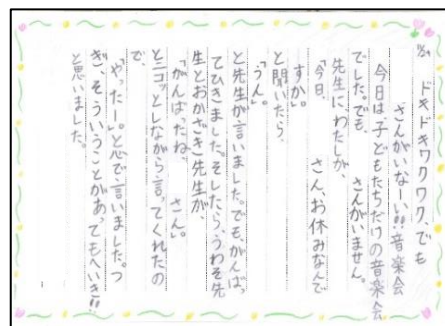 11/29
ドキドキワクワク、でも
さんがいなーい!!音楽会
今日は子どもたちだけの音楽会
でした。でも、 さんがいません。
先生にわたしが、
「今日、 さん、お休みなんで
すか。」
と聞いたら、
「うん」。
と先生が言いました。でも、がんばっ
てひきました。そしたら、うわそ先
生とおかざき先生が、
「がんばったね、 さん」。
とニコッとしながら言ってくれたの
で、
「やったー」。と心で言いました。つ
ぎ、そういうことがあってもへいき!!
と思いました。